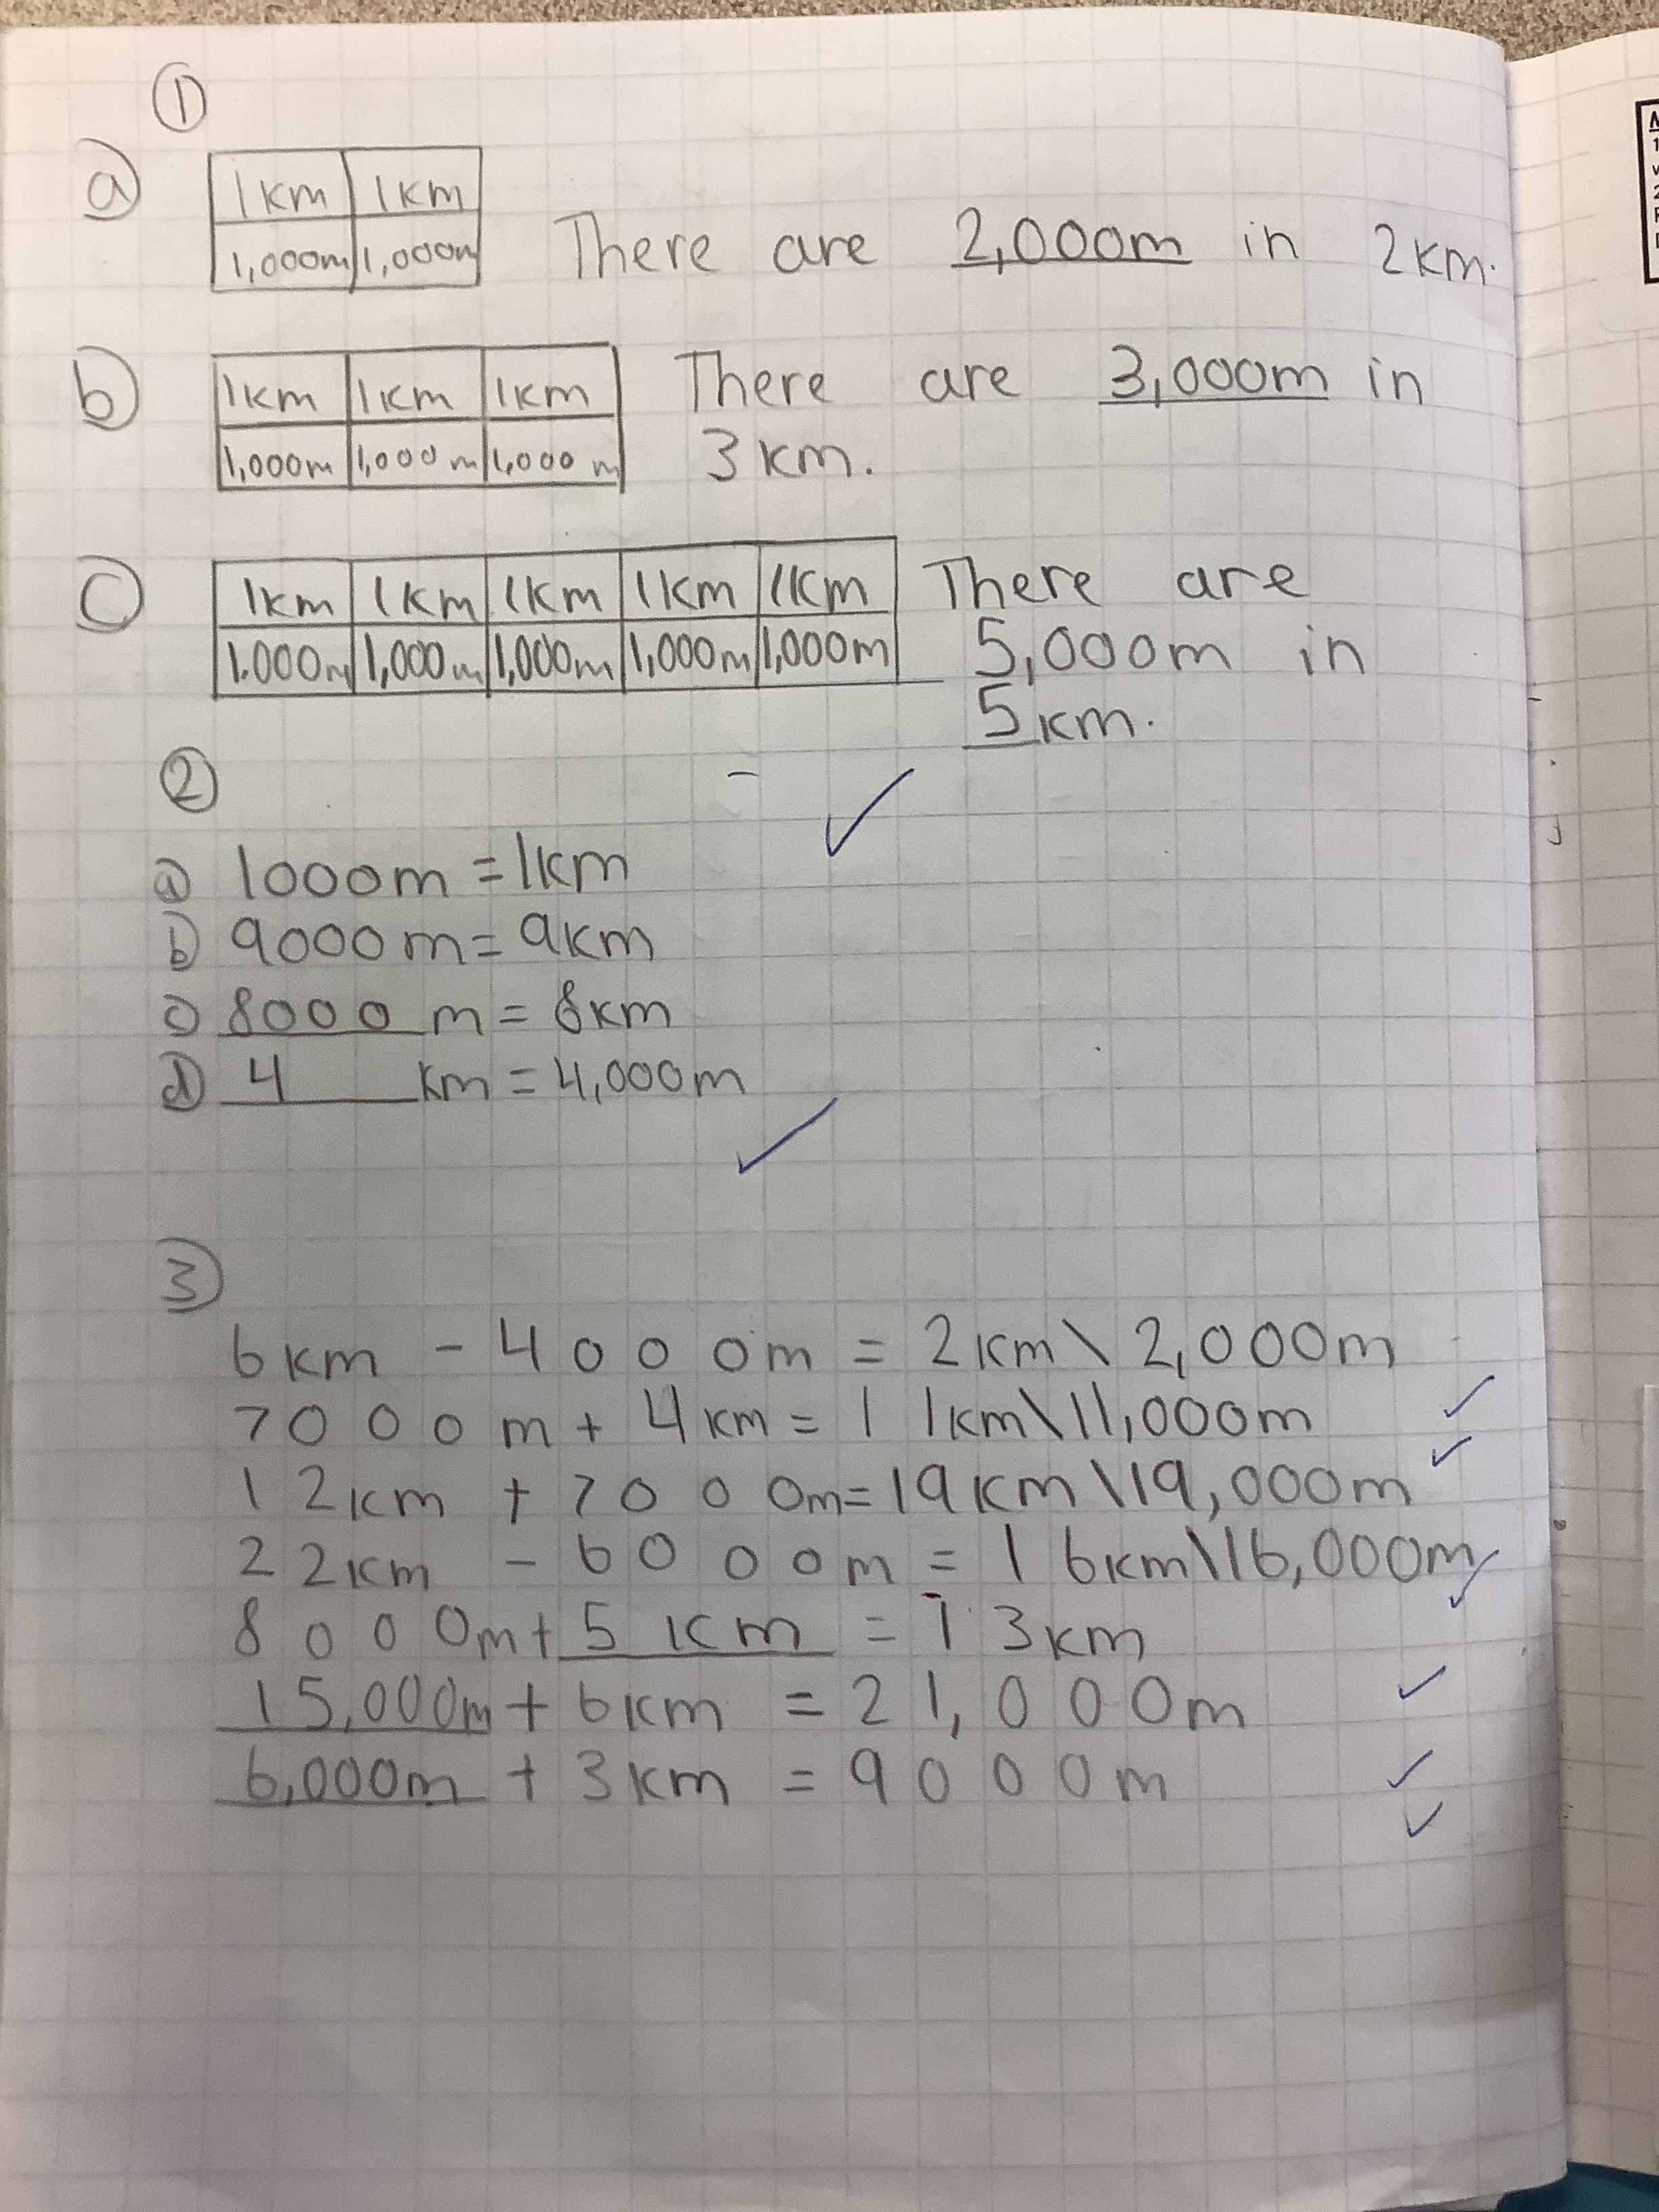 ①
a) 1km 1km
1,000m 1,000m There are 2,000m in 2km.
b) 1km 1km 1km There are 3,000m in
1,000m 1,000m 1,000m 3km.
c) 1km 1km 1km 1km 1km There are
1.000m 1,000m 1,000m 1,000m 1,000m 5,000m in
5km.
②
a) 1000m = 1km
b) 9000m = 9km
c) 8000 m = 8km
d) 4 km = 4,000m
3)
6km - 4000m = 2km\2,000m
7000m + 4km = 11km\11,000m
12km + 7000m = 19km\19,000m
22km - 6000m = 16km\16,000m
8000m + 5km = 13km
15,000m + 6km = 21,000m
6,000m + 3km = 9000m